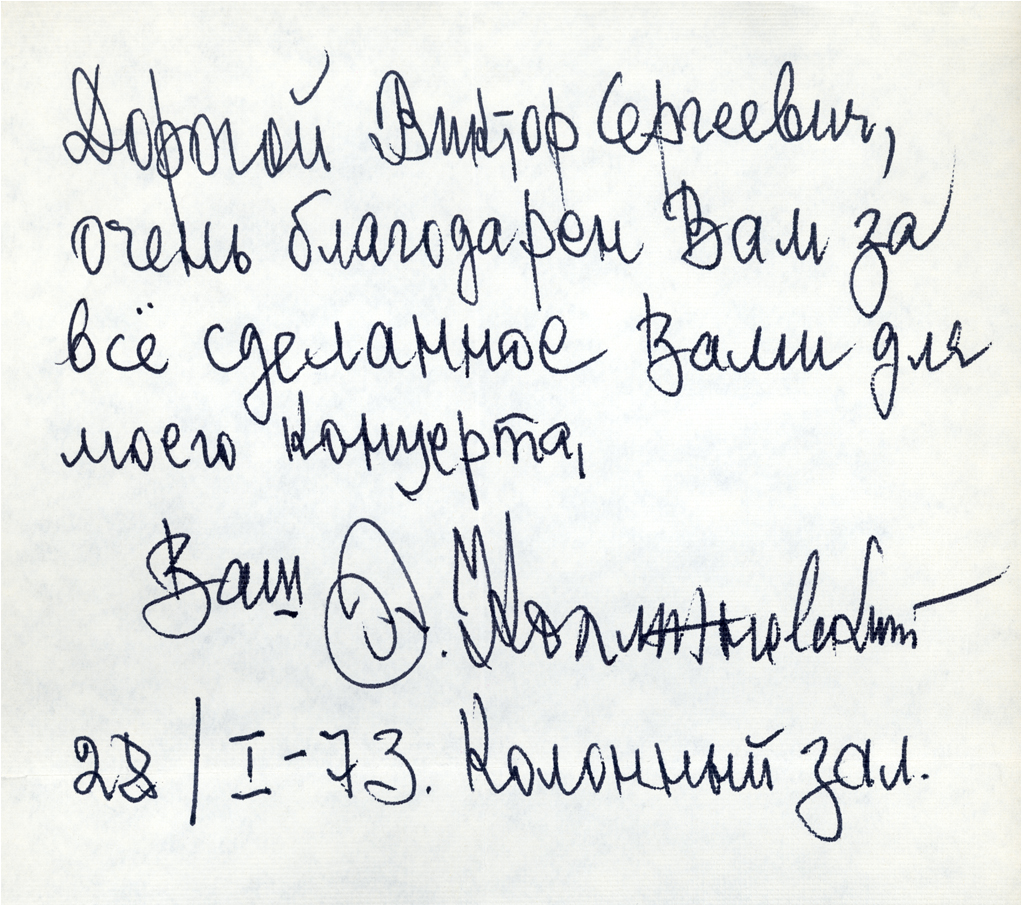 Дорогой Виктор Сергеевич,
очень благодарен Вам за
всё сделанное Вами для
моего концерта,
Ваш Э. Колмановский
28/I-73. Колонный зал.